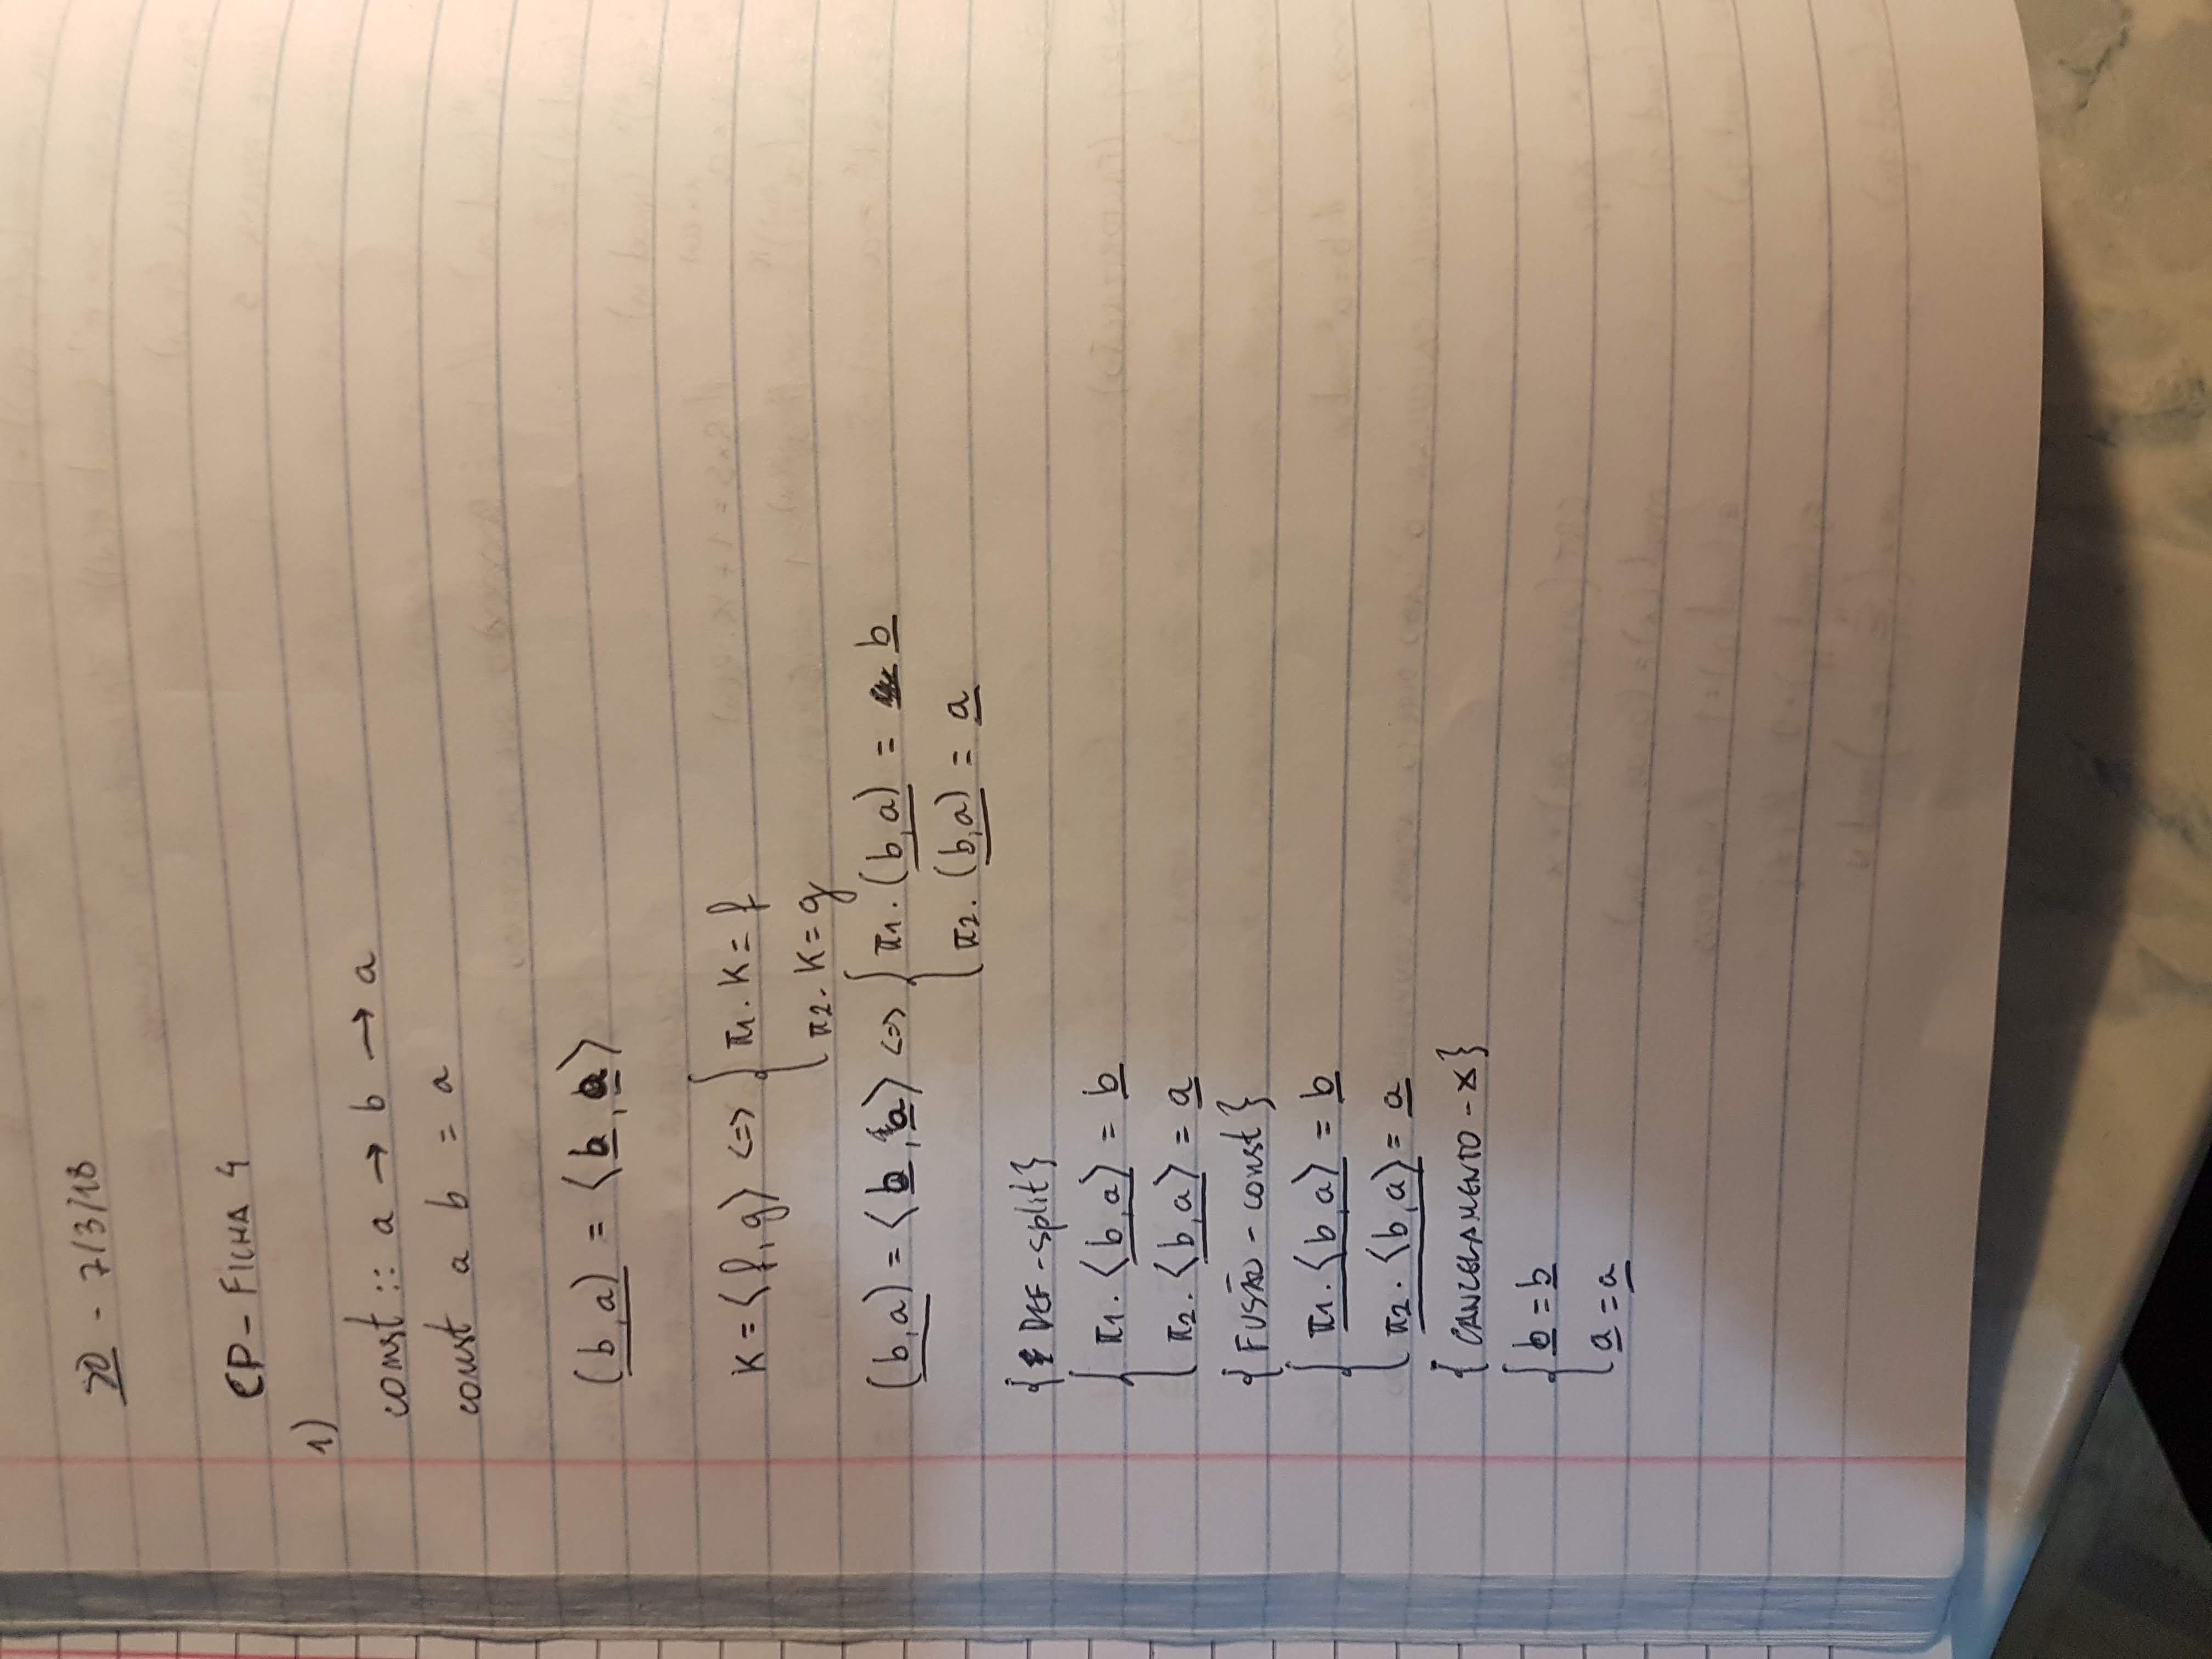 20 - 7/3/18
CP - FICHA 4
1)
const :: a → b → a
const a b = a
(b,a) = ⟨b, a⟩
K = ⟨f, g⟩ <=> { π1 . K = f
π2 . K = g
(b,a) = ⟨b, a⟩ <=> { π1 . (b,a) = b
π2 . (b,a) = a
{ DEF - split}
{ π1 . ⟨b, a⟩ = b
π2 . ⟨b, a⟩ = a
{FUSÃO - const}
{ π1 . ⟨b, a⟩ = b
π2 . ⟨b, a⟩ = a
{CANCELAMENTO - x}
{ b = b
a = a